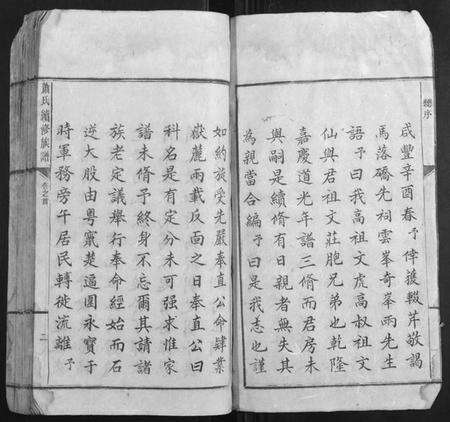 總序
咸豐辛酉春予倖獲輟芹敬謁
馬落礄先祠雲峯奇峯雨先生
語予曰我高祖文虎高叔祖文
仙與君祖文莊胞兄弟也乾隆
嘉慶道光年譜三脩而君房未
與嗣是續脩有日親者無失其
為親當合編予曰是我志也謹
如約旋受先嚴奉直公命肄業
嶽麓兩載反面之日奉直公曰
科名是有定分未可强求惟家
譜未脩予終身不忘爾其請諸
族老定議舉行奉命經始而石
逆大股由粵竄葖逼圍永寶于
時軍務旁午居民轉徙流離予
氏續修族譜
卷之首
二